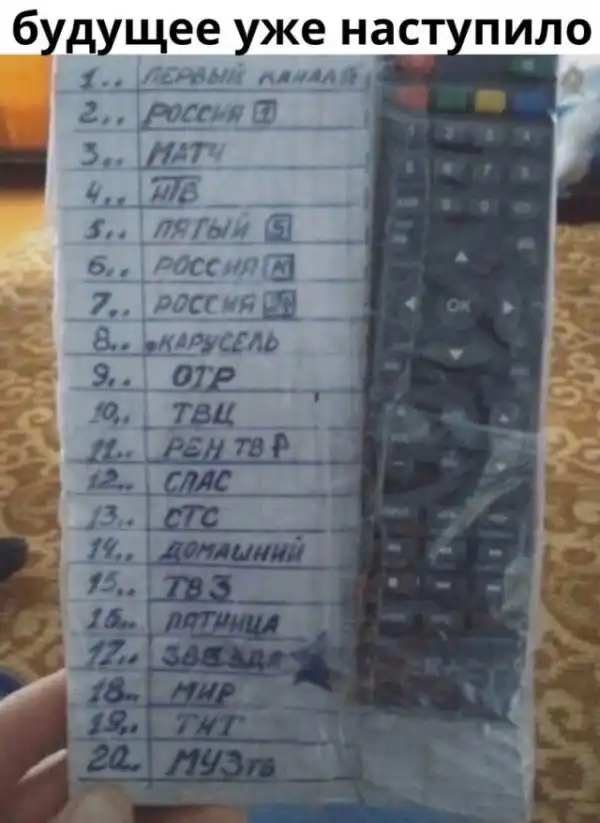 будущее уже наступило
1.. ПЕРВЫЙ КАНАЛ
2.. РОССИЯ 1
3.. МАТЧ
4.. НТВ
5.. ПЯТЫЙ 5
6.. РОССИЯ К
7.. РОССИЯ 24
8.. КАРУСЕЛЬ
9.. ОТР
10.. ТВЦ
11.. РЕН ТВ
12.. СПАС
13.. СТС
14.. ДОМАШНИЙ
15.. ТВ3
16.. ПЯТНИЦА
17.. ЗВЕЗДА
18.. МИР
19.. ТНТ
20.. МУЗТВ
OK